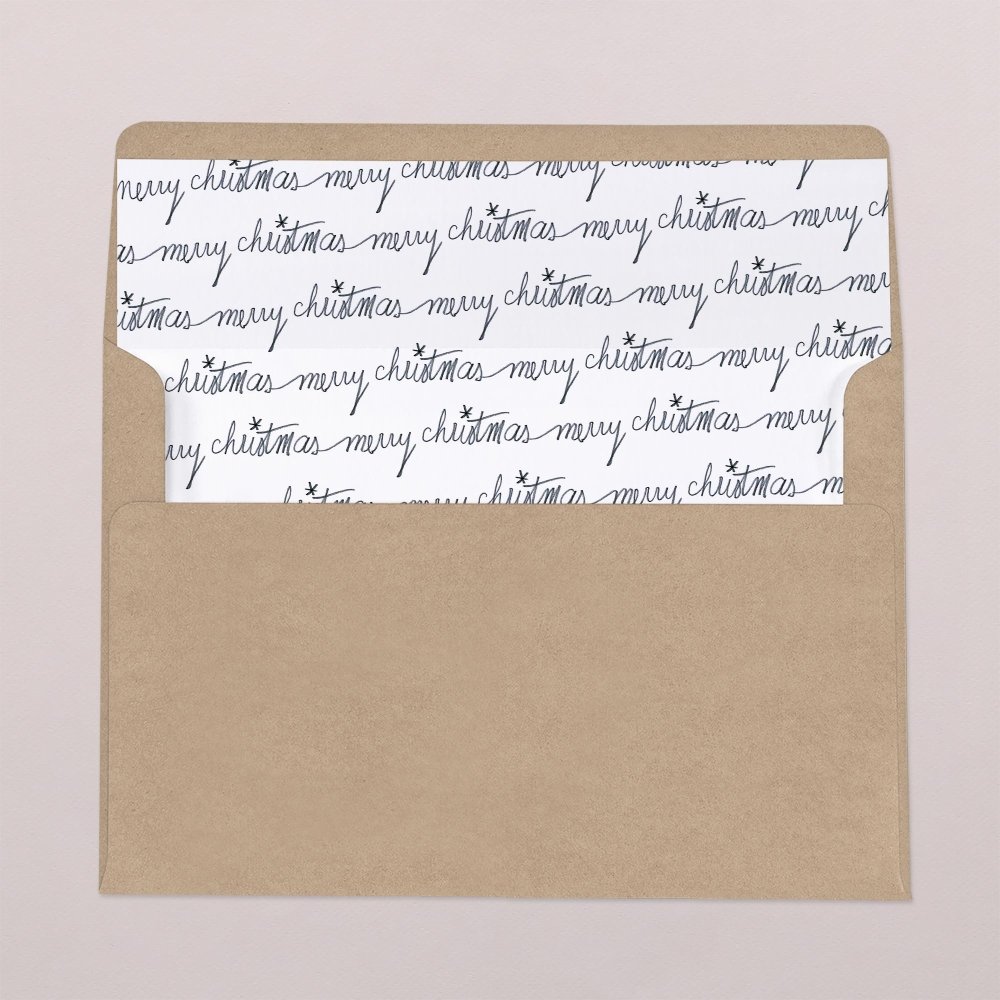 merry christmas merry christmas merry christmas merry
as merry christmas merry christmas merry christmas merry ch
istmas merry christmas merry christmas merry christmas mer
christmas merry christmas merry christmas merry christma
rry christmas merry christmas merry christmas merry
christmas merry christmas merry christmas m